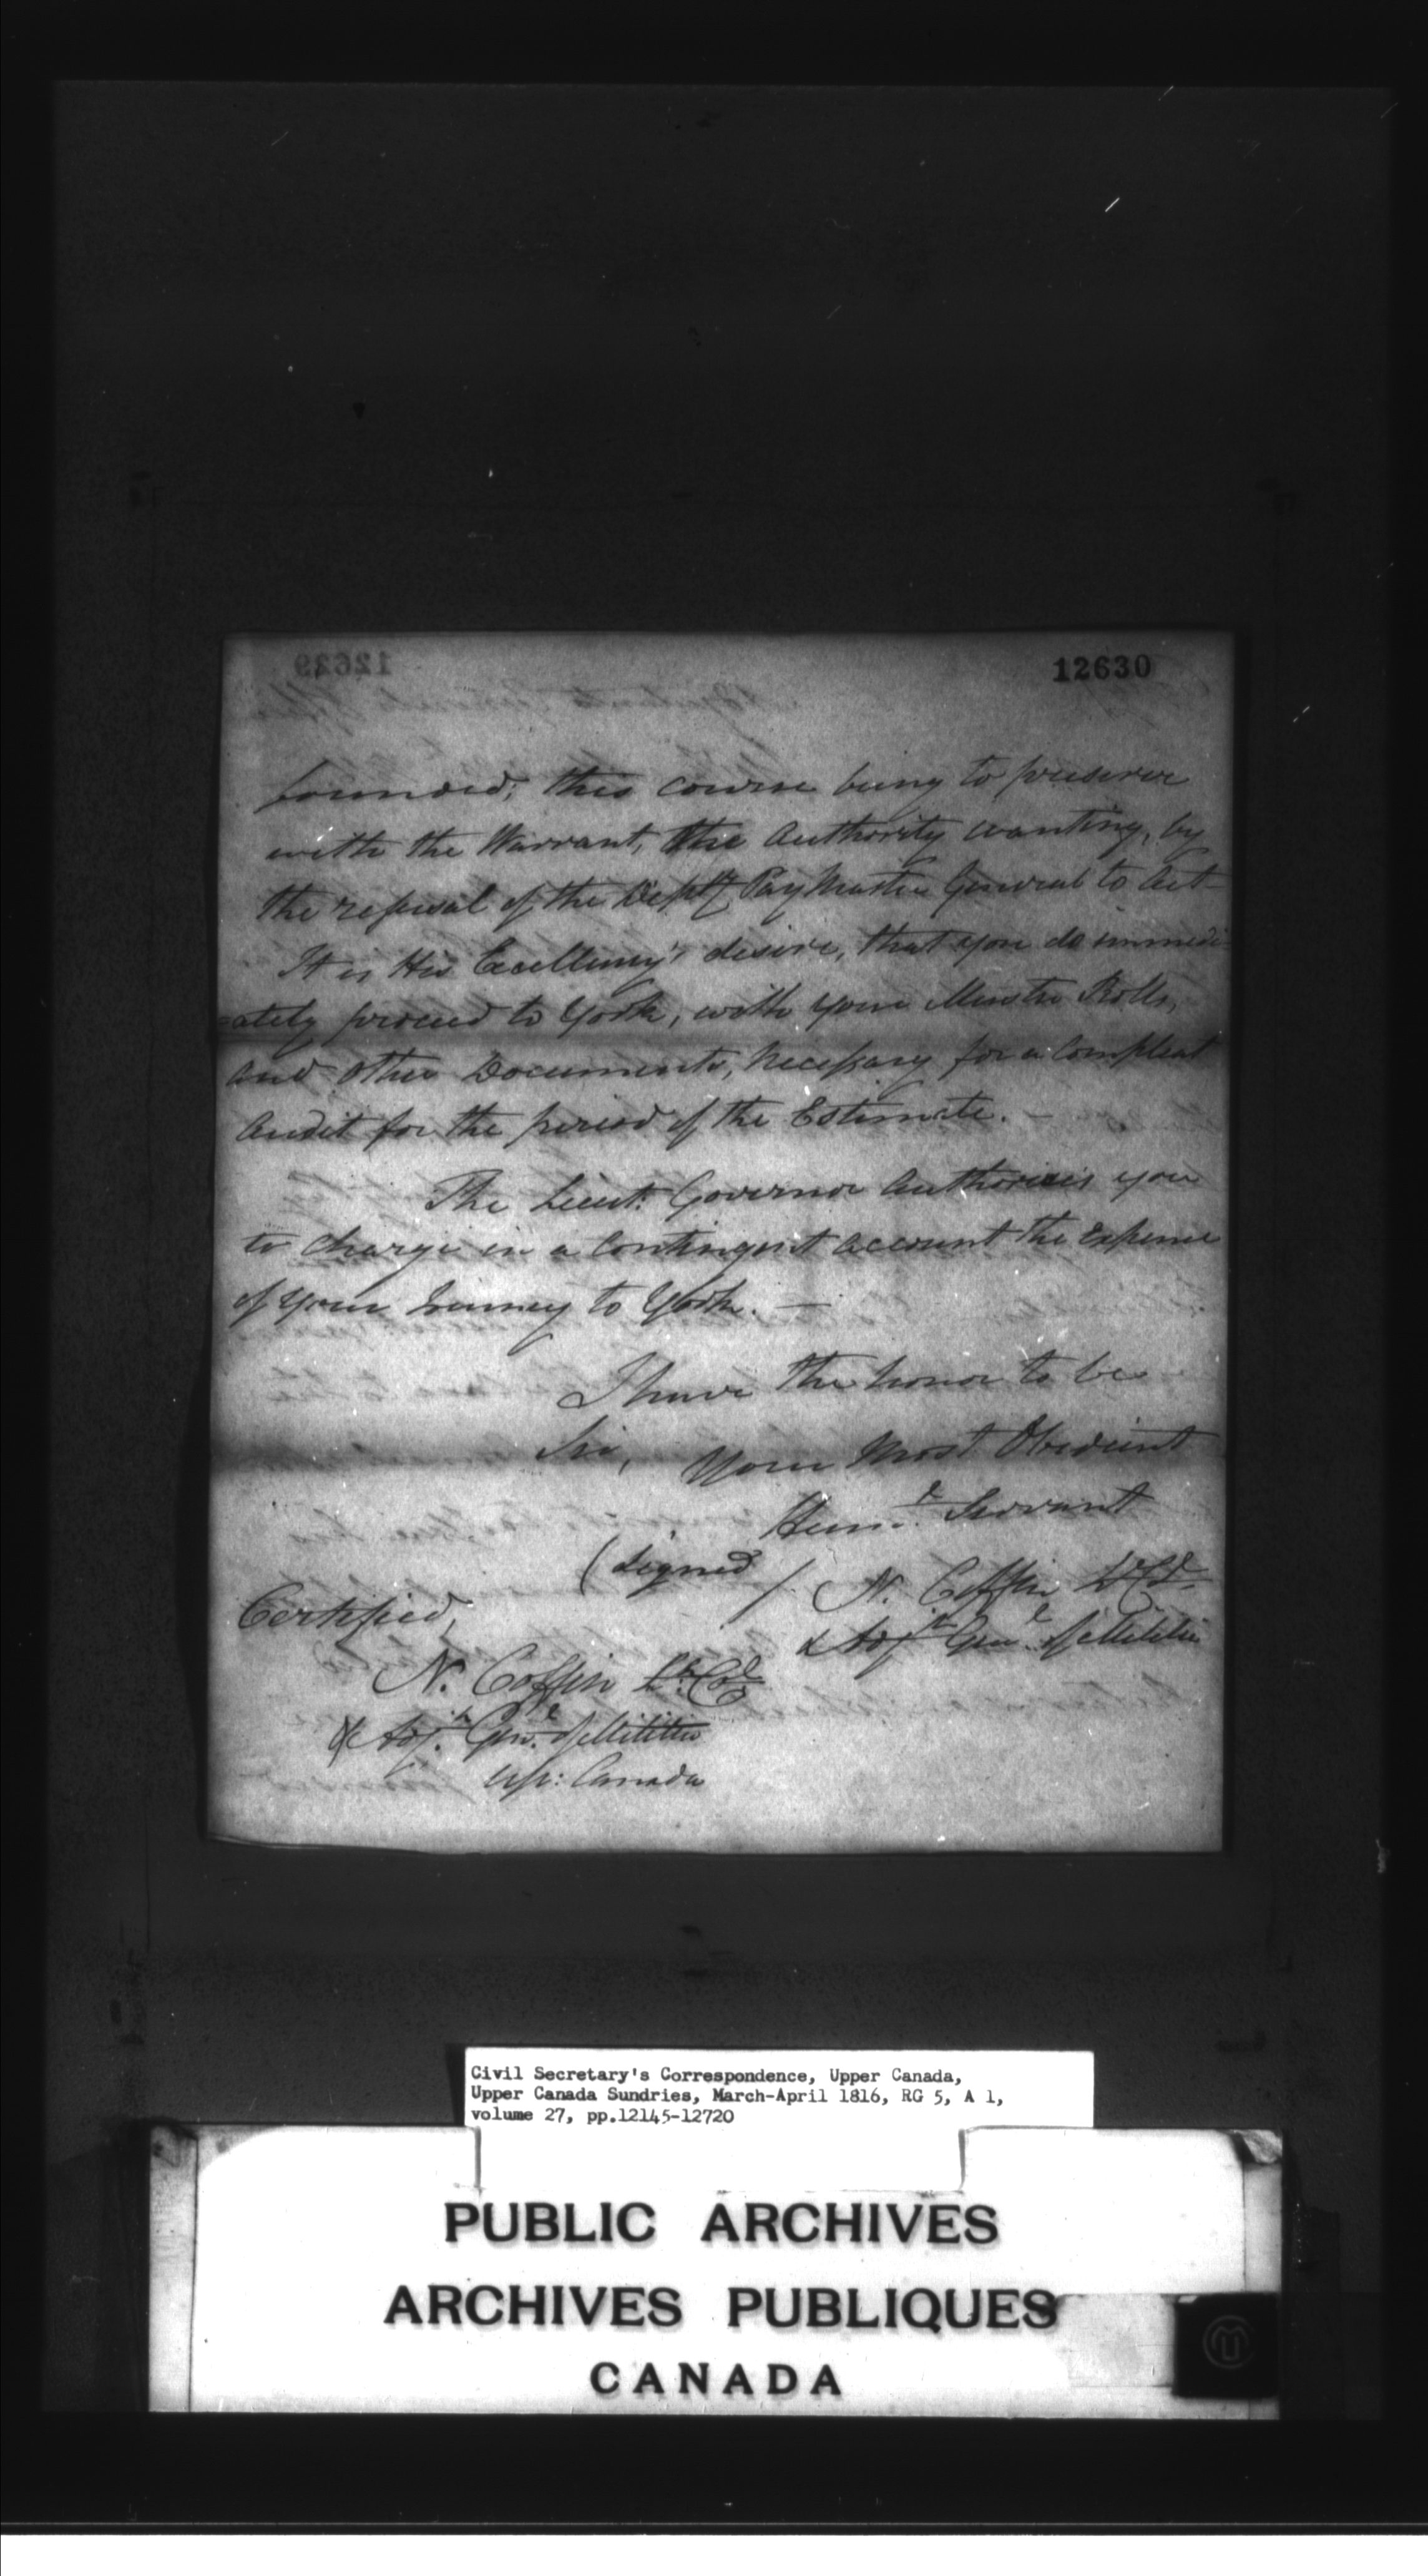 12630
founded; this course being to preserve
with the Warrant, the Authority wanting, by
the refusal of the Depty Pay Master General to Act—
It is His Excellency's desire, that you do immedi
=ately proceed to York, with your Muster Rolls,
and other Documents, Necessary for a Compleat
Audit for the period of the Estimate. —
The Lieut: Governor Authorizes you
to charge in a Contingent Account the Expense
of your Journey to York. —
I have the honor to be
Sir, Your Most Obedient
Hum.e Servant
(Signed / N. Coffin Lt Col.
& Adjt Genl of Militia
Certified,
N. Coffin Lt. Col
& Adjt Genl. of Militia
Up: Canada
Civil Secretary's Correspondence, Upper Canada,
Upper Canada Sundries, March-April 1816, RG 5, A 1,
volume 27, pp.12145-12720
PUBLIC ARCHIVES
ARCHIVES PUBLIQUES
CANADA